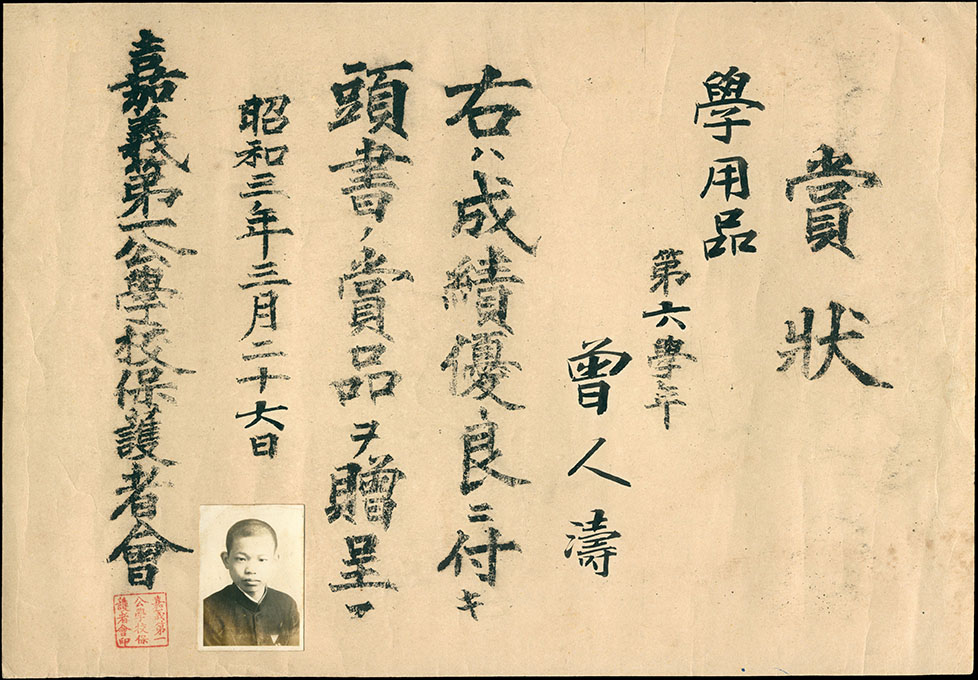 賞狀
學用品
第六學年
曾人濤
右ハ成績優良ニ付キ
頭書ノ賞品ヲ贈呈ス
昭和三年三月二十六日
嘉義第一公學校保護者會
嘉義第一
公學校保
護者會印